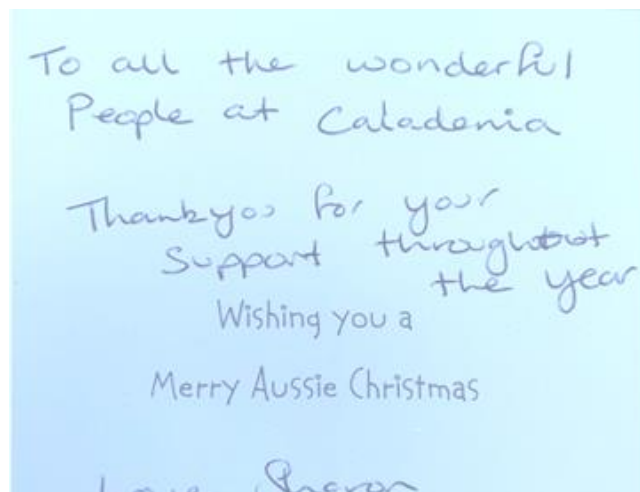 To all the wonderful
People at Caladenia
Thankyou for your
Support throughout
the year
Wishing you a
Merry Aussie Christmas
Love Sharon